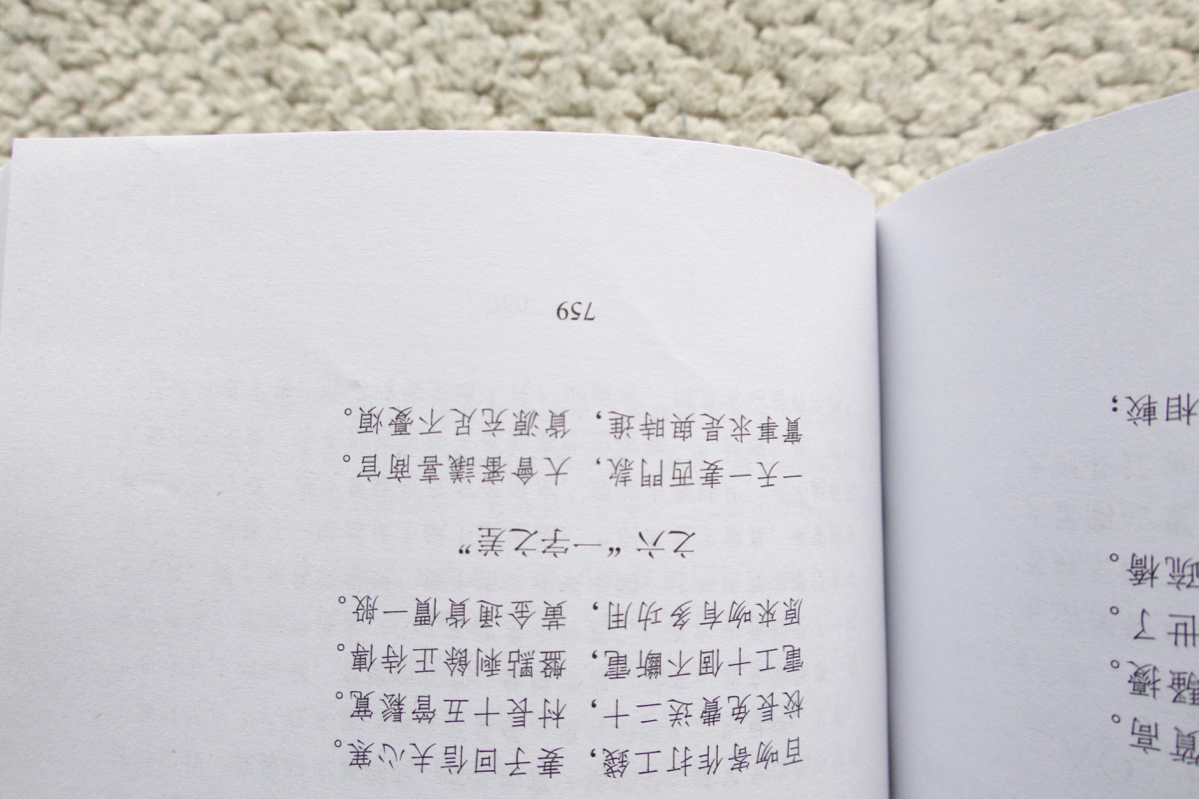 高。
騷擾。
世了。
橋。
相較；
百吻寄作打工錢，妻子回信夫心寒。
校長免費送二十，村長十五管鬆寬。
電工十個不斷電，盤點剩餘正待傳。
原來吻有多功用，黃金通貨價一般。
之六 “一字之差”
一天一妻西門款，大會審議喜商官。
實事求是與時進，貨源充足不憂煩。
759